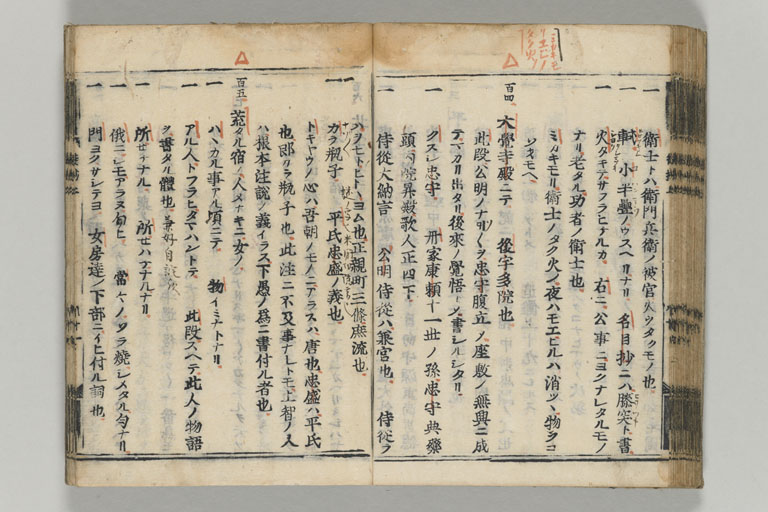 一 衛士トハ衛門兵衛ノ被官火ヲタクモノ也
一 軾 小半畳ノウスヘリナリ 名目抄ニハ膝突ト書
一 火タキテサフラヒナルカ 右ニ公事ニヨクナレタルモノ
ナリ老タル功者ノ衛士也
ミカキモリ衛士ノタク火ノ夜ハモエヒルハ消ツヽ物ヲコ
ソオモヘ
百四 大覺寺殿ニテ 後宇多院也
此段公明ノナリ ヲ忠守腹立ノ座敷ノ無興ニ成
テマカリ出タリ後來ノ覺悟 書シルシタリ
一 クスシ忠守 丹家康頼十一世ノ孫忠守典藥
頭 院昇殿歌人正四下
一 侍従大納言 公明 侍従ハ兼官也 侍従ヲ
ハヲモトヒトヽヨム也正親町三條庶流也
一 カラ瓶子 平氏忠盛ノ義也
トキヤウノ心ハ吾朝ノモノニアラスハ唐也忠盛ハ平氏
也郎カラ瓶子也 此注ニ不及事ナレトモ上智ノ人
ハ根本注説ノ義イラス下愚ノ為ニ書付ル者也
百五 荒タル宿ノ人メナキニ女ノ
一 ハヽカル事アル頃ニテ 物イミナトナリ
一 アル人トフラヒタマハントテ 此段スヘテ此人ノ物語
ヲ書タル體也
一 所セナル 所セハナルナリ
一 俄ニシモアラヌ匂ヒ 常ヤノソラ焼シメタル匂ナリ
一 門ヨクサシテヨ 女房達ノ下部ニイヒ付ル詞也